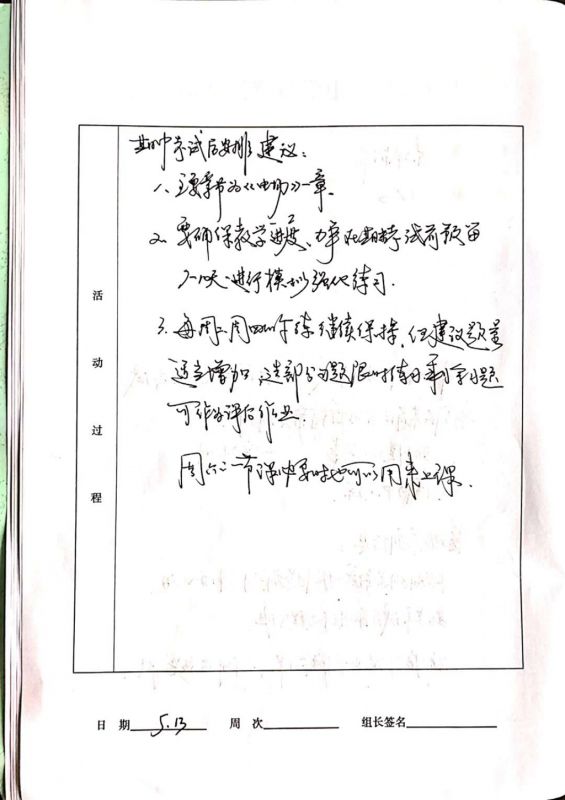 期中考试后安排建议：
1. 主要章节为《电场》一章.
2. 要确保教学进度、力争在期末考试前预留
7-10天进行模拟强化练习.
3. 每周二、周四的午练继续保持，但建议题量
适当增加，选部分习题限时练习剩余习题
可作为课后作业.
周六二节课必要时也可以用来上课.
活
动
过
程
日 期 5.13 周 次 组长签名